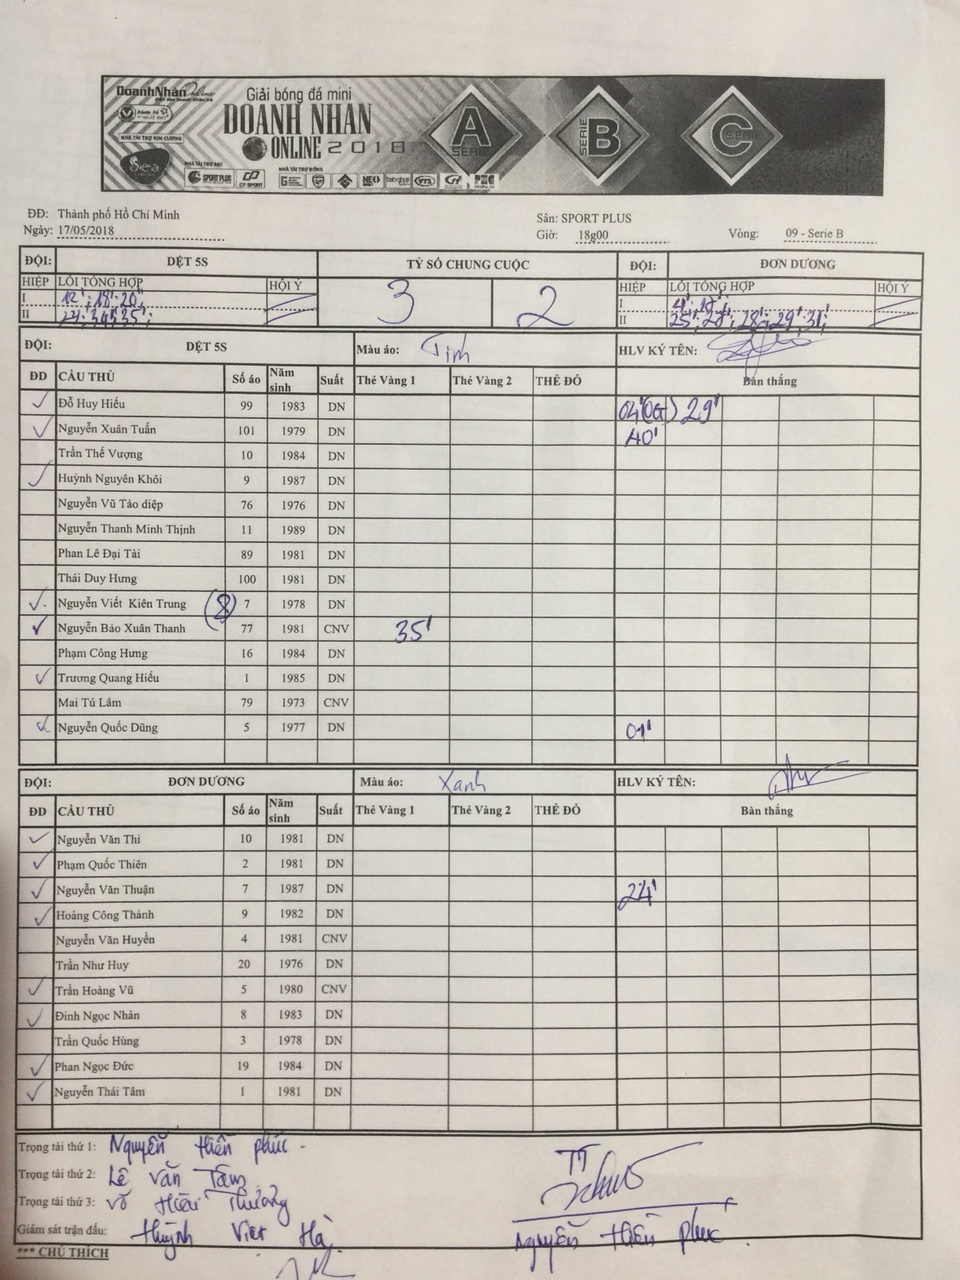 DoanhNhân Online
Giải bóng đá mini
DOANH NHÂN
ONLINE 2018
A SERIE
SERIE B
C SERIE
NHÀ TÀI TRỢ KIM CƯƠNG
Sea
NHÀ TÀI TRỢ BẠC
SPORT PLUS
CP SPORT
NHÀ TÀI TRỢ ĐỒNG
NEO
VTS
ĐĐ: Thành phố Hồ Chí Minh
Sân: SPORT PLUS
Ngày: 17/05/2018
Giờ: 18g00 Vòng: 09 - Serie B
ĐỘI: DỆT 5S TỶ SỐ CHUNG CUỘC ĐỘI: ĐƠN DƯƠNG
HIỆP LỖI TỔNG HỢP HỘI Ý 3 2 HIỆP LỖI TỔNG HỢP HỘI Ý
I 12'; 18'; 20'; I 4'; 12';
II 24'; 34'; 35'; II 25'; 27'; 28'; 29'; 31';
ĐỘI: DỆT 5S Màu áo: Tím HLV KÝ TÊN:
ĐD CẦU THỦ Số áo Năm sinh Suất Thẻ Vàng 1 Thẻ Vàng 2 THẺ ĐỎ Bàn thắng
Đỗ Huy Hiếu 99 1983 DN 04'(OG) 29'
Nguyễn Xuân Tuấn 101 1979 DN 40'
Trần Thế Vượng 10 1984 DN
Huỳnh Nguyên Khôi 9 1987 DN
Nguyễn Vũ Tảo diệp 76 1976 DN
Nguyễn Thanh Minh Thịnh 11 1989 DN
Phan Lê Đại Tài 89 1981 DN
Thái Duy Hưng 100 1981 DN
Nguyễn Viết Kiên Trung (8) 7 1978 DN
Nguyễn Bảo Xuân Thanh 77 1981 CNV 35'
Phạm Công Hưng 16 1984 DN
Trương Quang Hiếu 1 1985 DN
Mai Tú Lâm 79 1973 CNV
Nguyễn Quốc Dũng 5 1977 DN 01'
ĐỘI: ĐƠN DƯƠNG Màu áo: Xanh HLV KÝ TÊN:
ĐD CẦU THỦ Số áo Năm sinh Suất Thẻ Vàng 1 Thẻ Vàng 2 THẺ ĐỎ Bàn thắng
Nguyễn Văn Thi 10 1981 DN
Phạm Quốc Thiên 2 1981 DN
Nguyễn Văn Thuận 7 1987 DN 24'
Hoàng Công Thành 9 1982 DN
Nguyễn Văn Huyền 4 1981 CNV
Trần Như Huy 20 1976 DN
Trần Hoàng Vũ 5 1980 CNV
Đinh Ngọc Nhàn 8 1983 DN
Trần Quốc Hùng 3 1978 DN
Phan Ngọc Đức 19 1984 DN
Nguyễn Thái Tâm 1 1981 DN
Trọng tài thứ 1: Nguyễn Hiền Phúc
Trọng tài thứ 2: Lê Văn Tâm
Trọng tài thứ 3: Võ Hiếu Thường
Giám sát trận đấu: Huỳnh Việt Hà
TT
Nguyễn Hiền Phúc
*** CHÚ THÍCH